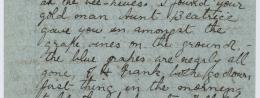 at the bee-hives, I found your
gold man Aunt Beatrice
gave you in amongst the
grape vines on the ground, -
the blue grapes are nearly all
gone, Frank goes down
first thing in the morning